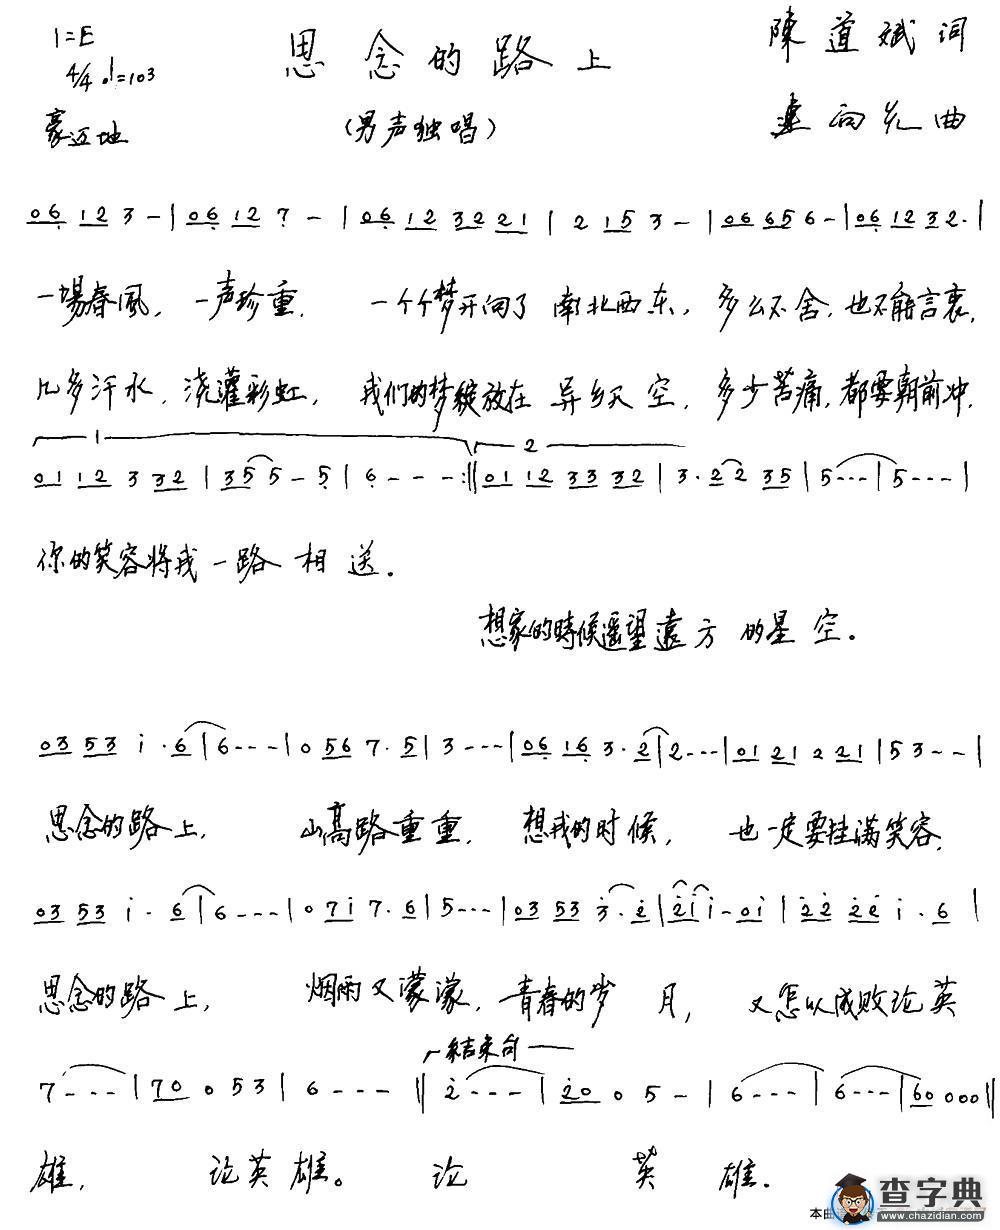 1=E
思念的路上
陳道斌 词
4/4 ♩=103
豪迈地
(男声独唱)
连向先 曲
06 12 3 - | 06 12 7 - | 06 12 32 21 | 2 15 3 - | 06 656 6 - | 06 12 32. |
一場春風, 一声珍重, 一个个梦开向了南北西东, 多么不舍,也不能言衷,
几多汗水,浇灌彩虹, 我们的梦绽放在异乡天空, 多少苦痛,都要朝前冲,
1 2
01 12 3 32 | 35 5 - 5 | 6 - - - :|| 01 12 33 32 | 3. 22 35 | 5 - - - | 5 - - - |
你的笑容将我一路相送.
想家的時候遥望遠方的星空.
03 53 i. 6 | 6 - - - | 0 56 7. 5 | 3 - - - | 06 16 3. 2 | 2 - - - | 01 21 2 21 | 5 3 - - |
思念的路上, 山高路重重, 想我的时候, 也一定要挂满笑容,
03 53 i. 6 | 6 - - - | 0 7i 7. 6 | 5 - - - | 03 53 3. 2 | 2i i - 0i | 22 22 i. 6 |
思念的路上, 烟雨又濛濛, 青春的岁月, 又怎以成败论英
结束句
7 - - - | 70 0 5 3 | 6 - - - || 2 - - - | 20 0 5 - | 6 - - - | 6 - - - | 60 000 ||
雄, 论英雄。 论英雄.
查字典
www.chazidian.com
本曲